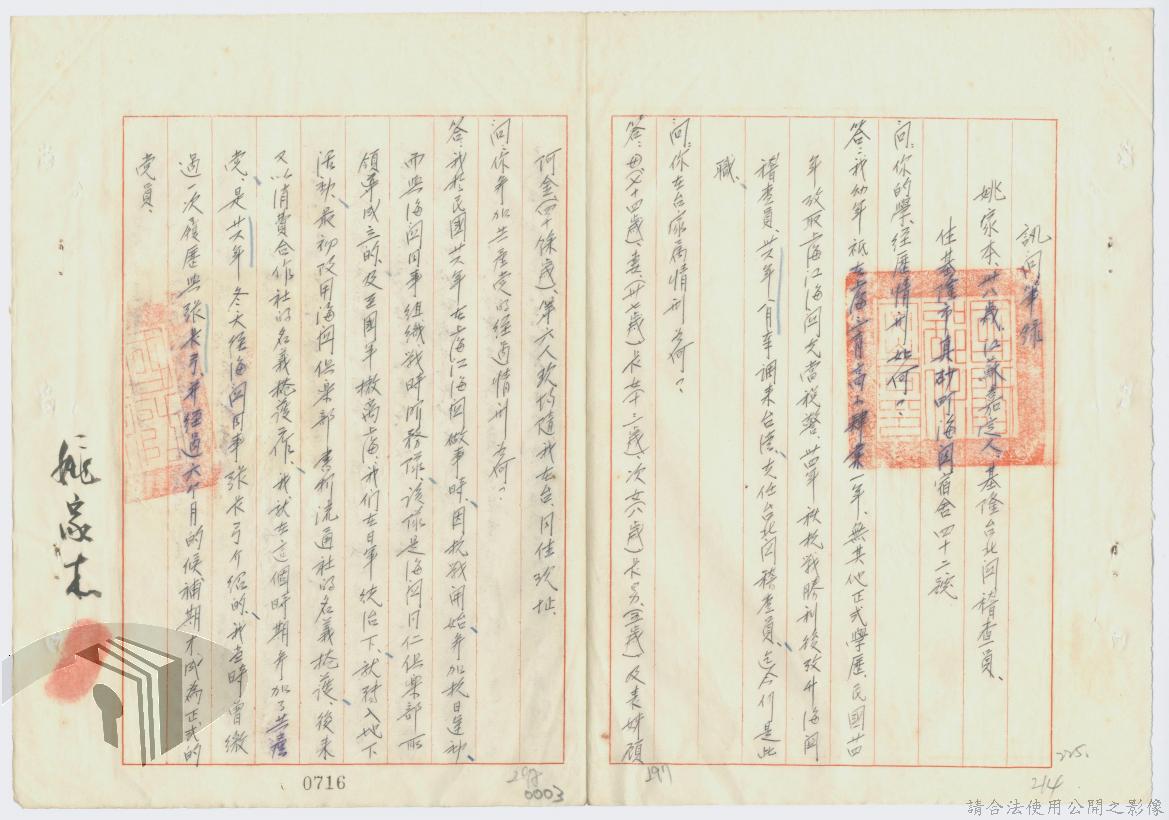 訊問筆錄
姚家本、卅八歲、江蘇嘉定人、基隆台北関稽查員、
住基隆市真砂町海関宿舍四十二號
問：你的學、經歷情形如何？
答：我幼年祇在上海三育高小肄業一年、無其他正式學歷、民國廿四
年考取上海江海関充當稅警、卅四年秋抗戰勝利後改升海関
稽查員、卅六年八月奉調來台湾、充任台北関稽查員、迄今仍是此
職、
問：你在台家屬情形若何？
答：母（七十四歲）、妻（卅七歲）長女（十三歲）、次女（八歲）長男（三歲）及表姊顧
阿金（四十餘歲）、等六人玖均隨我在台、同住玖址、
問：你參加共產党的經過情形若何？
答：我於民國廿六年在上海江海関做事時、因抗戰開始參加抗日運動、
而與海関同事組織戰時服務隊、該隊是海関同仁俱楽部所
領導成立的、及至國軍撤离上海、我们在日軍統治下、就轉入地下
活動、最初改用海関俱楽部、書報流通社的名義掩護、後來
又以消費合作社的名義掩護工作、我就在這個時期參加了共產
党、是廿六年冬天經海関同事張長弓介紹的、我当時曾繳
過一次履歷與張長弓、并經過六个月的候補期才成為正式的
党員、
姚家本
0716
298
0003
197
225.
214
請合法使用公開之影像